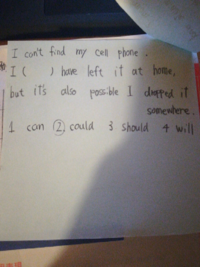 I can't find my cell phone.
I (    ) have left it at home,
but it's also possible I dropped it
somewhere.
1 can ② could 3 should 4 will